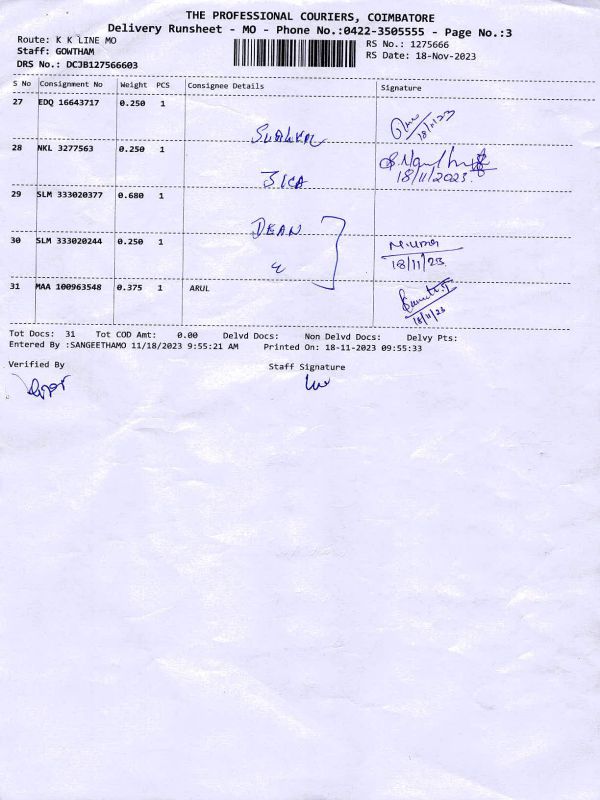 THE PROFESSIONAL COURIERS, COIMBATORE
Delivery Runsheet - MO - Phone No.:0422-3505555 - Page No.:3
Route: K K LINE MO
Staff: GOWTHAM
DRS No.: DCJB127566603
RS No.: 1275666
RS Date: 18-Nov-2023
S No Consignment No Weight PCS Consignee Details Signature
27 EDQ 16643717 0.250 1
18/11/23
28 NKL 3277563 0.250 1
JICA
18/11/2023
29 SLM 333020377 0.680 1
DEAN
30 SLM 333020244 0.250 1
18/11/23
31 MAA 100963548 0.375 1 ARUL
18/11/23
Tot Docs: 31 Tot COD Amt: 0.00 Delvd Docs: Non Delvd Docs: Delvy Pts:
Entered By :SANGEETHAMO 11/18/2023 9:55:21 AM Printed On: 18-11-2023 09:55:33
Verified By Staff Signature